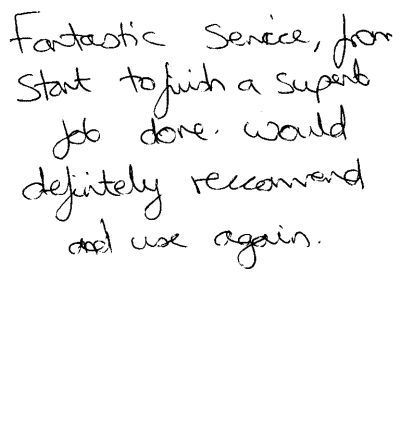 Fantastic Service, from
Start to finish a superb
job done. would
definitely reccomend
and use again.